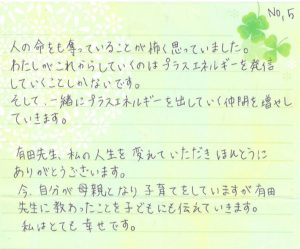 No,5
人の命をも奪っていることが怖く思っていました。
わたしがこれからしていくのはプラスエネルギーを発信
していくことしかないです。
そして、一緒にプラスエネルギーを出していく仲間を増やし
ていきます。
有田先生、私の人生を変えていただきほんとうに
ありがとうございます。
今、自分が母親となり子育てをしていますが有田
先生に教わったことを子どもにも伝えていきます。
私はとても幸せです。